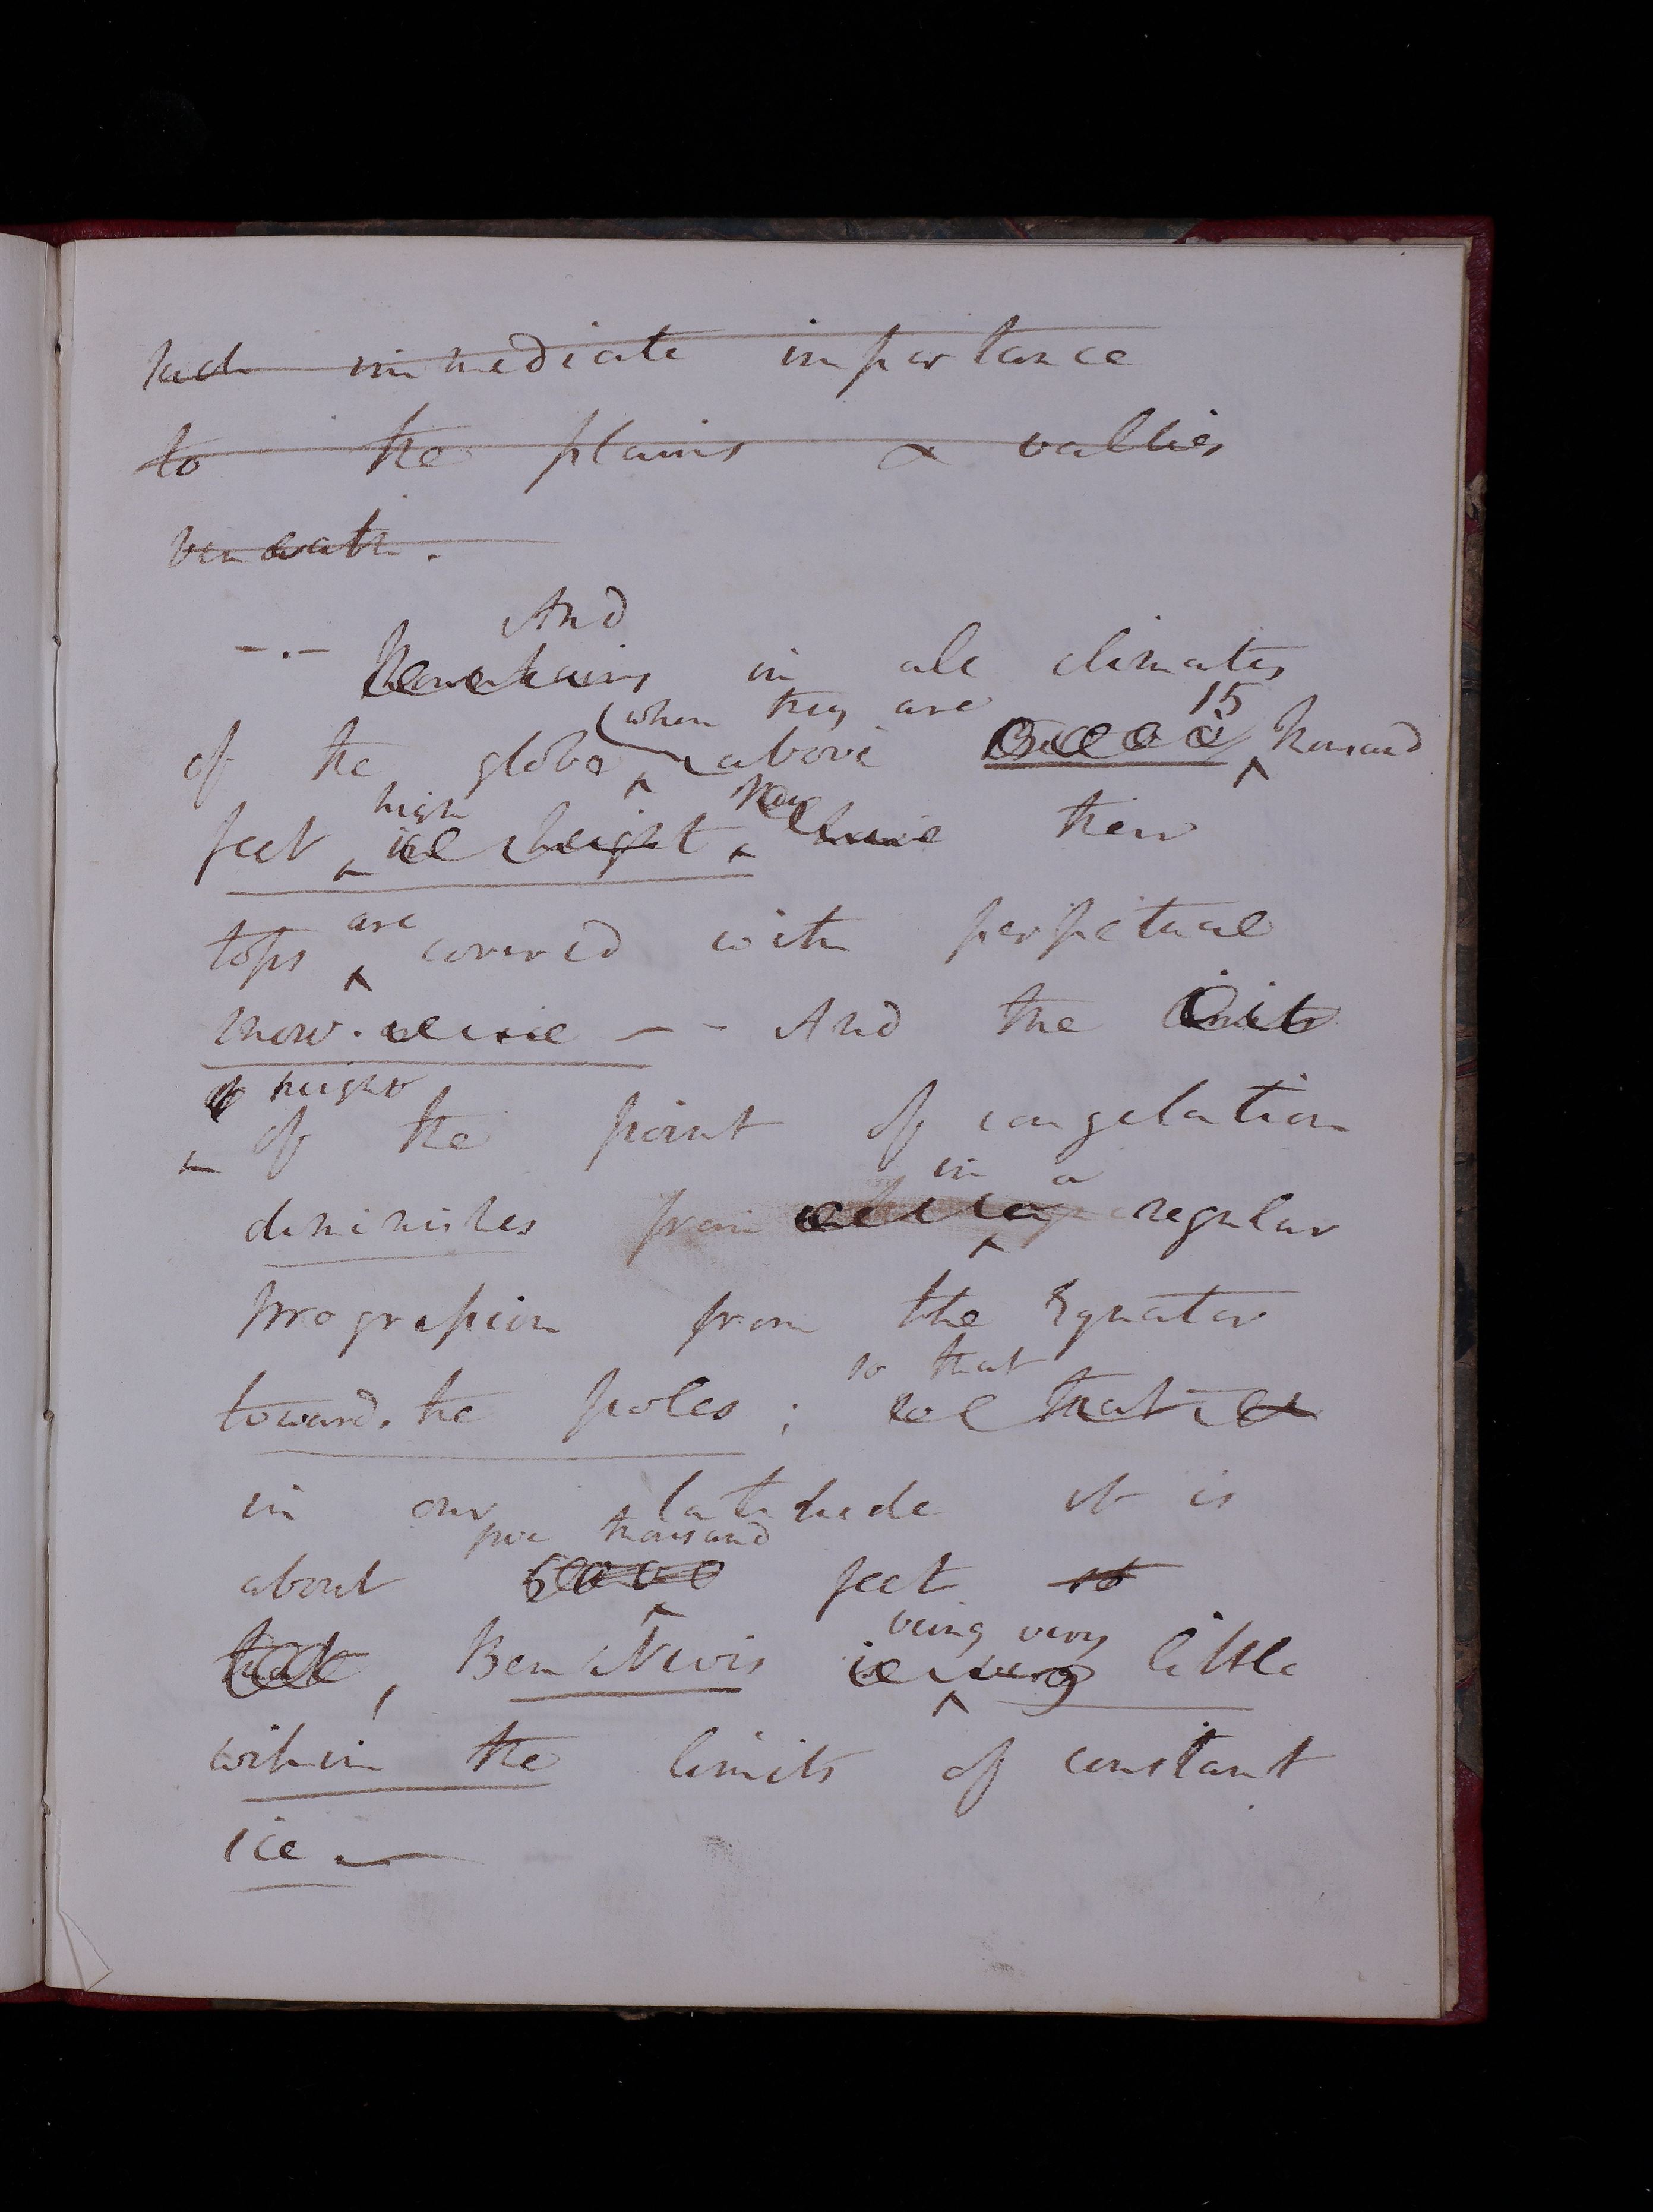 such immediate importance
to the plains & vallies
beneath.
And
-.- Mountains in all climates
(when they are 15
of the globe above thousand
high
feet in height have their
are
tops covered with perpetual
snow. - - And the limit
height
of the point of congelation
in a
diminishes from regular
progression from the Equator
so that
toward. the poles; so that
in our latitude it is
five thousand
about 5000 feet so
being very
that, Ben Nevis is very little
within the limits of constant
ice -